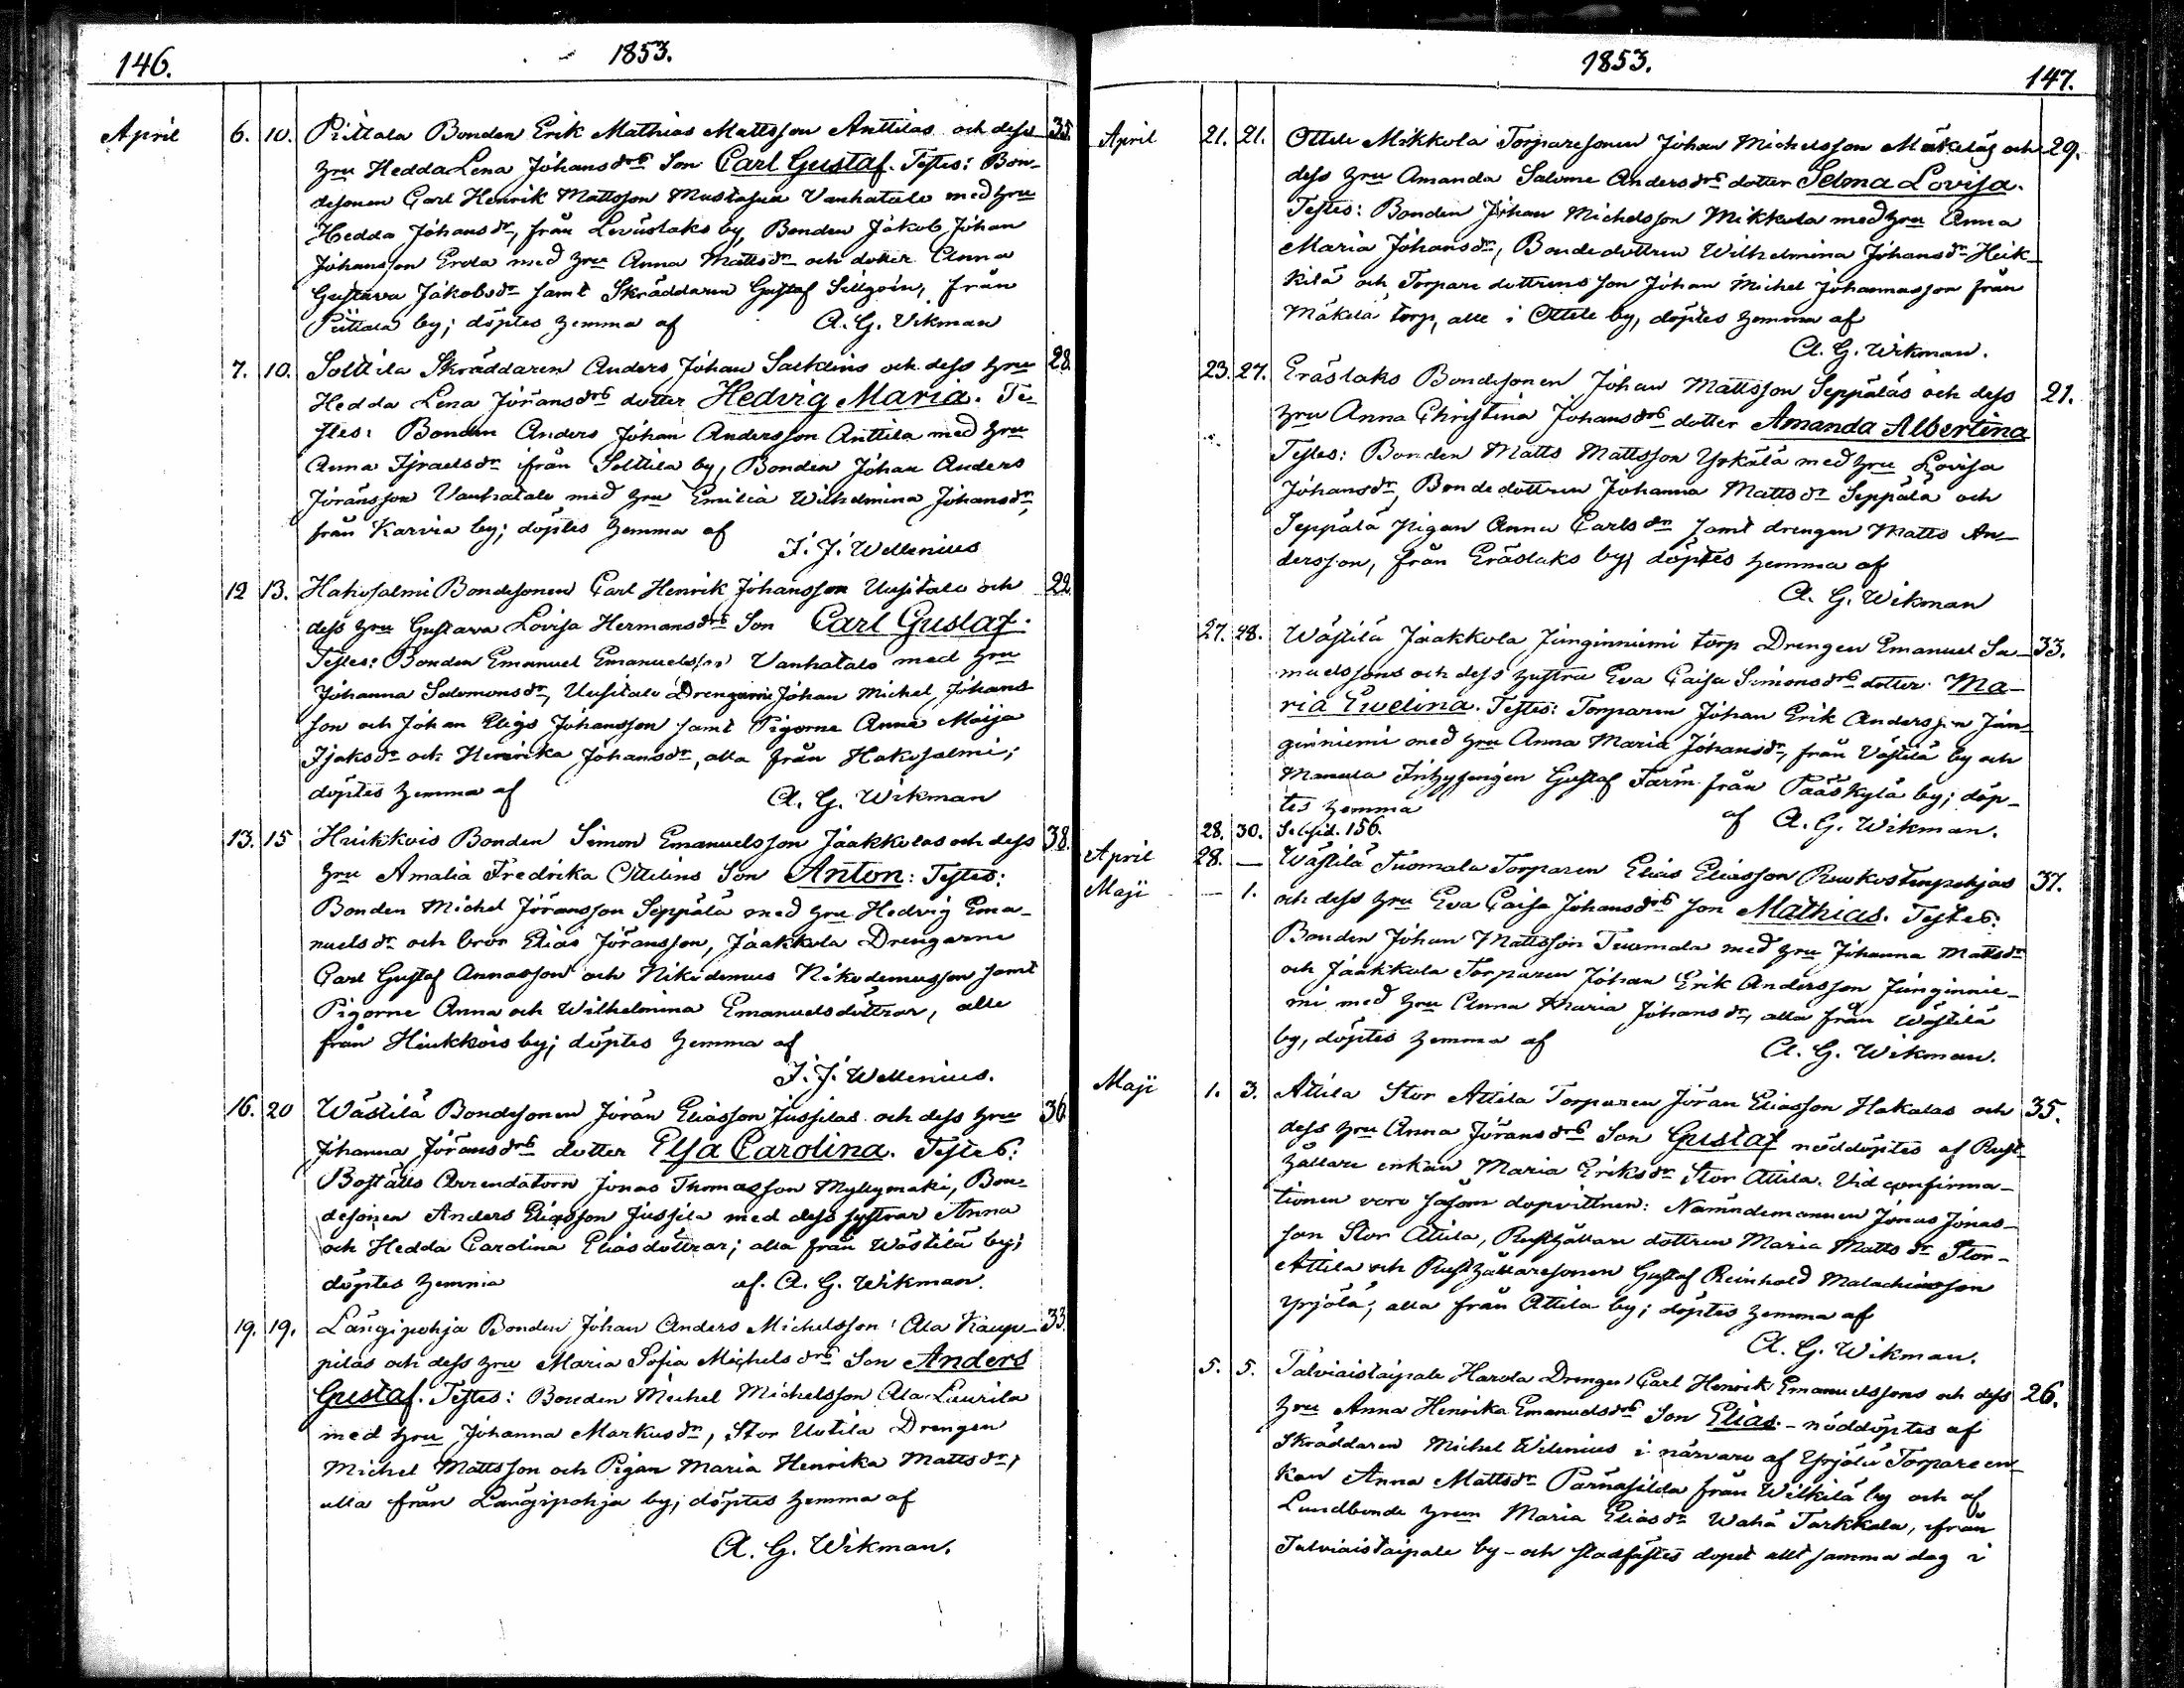 146.
1853.
April 6. 10. Pittala Bonden Erik Mathias Mattsson Anttilas och dess 35.
hru Hedda Lena Johansdrs Son Carl Gustaf. Testes: Bon-
desonen Carl Henrik Mattsson Vanhatalo med hru
Hedda Johansdr, från by, Bonden Jakob Johan
Johansson Erola med hru Anna Mattsdr och dotter Anna
Gustava Jakobsdr samt Skräddaren Gustaf från
Pittala by; döptes hemma af A. G. Wikman
7. 10. Solttila Skräddaren Anders Johan och dess hru 28.
Hedda Lena Jöransdrs dotter Hedvig Maria. Te-
stes: Bonden Anders Johan Andersson Anttila med hru
Anna Israelsdr ifrån Solttila by, Bonden Johan Anders
Jöransson Vanhatalo med hru Emilia Wilhelmina Johansdr,
från Karvia by; döptes hemma af
J. J. Wellenius
12 13. Hakosalmi Bondesonen Carl Henrik Johansson Uusitalo och 22.
dess hru Gustava Lovisa Hermansdrs Son Carl Gustaf.
Testes: Bonden Emanuel Emanuelsson Vanhatalo med hru
Johanna Salomonsdr, Uusitalo Drengarne Johan Michel Johans-
son och Johan Johansson samt Pigorne Anna Maija
Isaksdr och Henrika Johansdr, alla från Hakosalmi;
döptes hemma af A. G. Wikman
13. 15 Hiukkois Bonden Simon Emanuelsson Jaakkolas och dess 38.
hru Amalia Fredrika Ottelins Son Anton: Testes:
Bonden Michel Jöransson Seppälä med hru Hedvig Ema-
nuelsdr och bror Elias Jöransson, Jaakkola Drengarne
Carl Gustaf Annasson och Nikodemus Nikodemusson samt
Pigorne Anna och Wilhelmina Emanuelsdöttrar, alla
från Hiukkois by; döptes hemma af
J. J. Wellenius.
16. 20 Wästilä Bondesonen Jöran Eliasson Jussilas och dess hru 36
Johanna Jöransdrs dotter Elsa Carolina. Testes:
Boställs Arrendatorn Jonas Thomasson Myllymäki, Bon-
desonen Anders Eliasson Jussila med dess systrar Anna
och Hedda Carolina Eliasdöttrar; alla från Wästilä by;
döptes hemma af. A. G. Wikman.
19. 19. Längipohja Bonden Johan Anders Michelsson Ala Kaup- 33.
pilas och dess hru Maria Sofia Michelsdrs Son Anders
Gustaf. Testes: Bonden Michel Michelsson Ala Laurila
med hru Johanna Markusdr, Stor Uotila Drengen
Michel Mattsson och Pigan Maria Henrika Mattsdr,
alla från Längipohja by; döptes hemma af
A. G. Wikman.
1853.
147.
April 21. 21. Ottele Mikkola Torparesonen Johan Michelsson Mäkeläs och 29.
dess hru Amanda Salome Andersdrs dotter Selma Lovisa.
Testes: Bonden Johan Michelsson Mikkola med hru Anna
Maria Johansdr, Bondedottren Wilhelmina Johansdr Heik-
kilä och Torpare dottrens son Johan Michel Johannasson från
Mäkelä torp, alle i Ottele by, döptes hemma af
A. G. Wikman.
23. 27. Eräslaks Bondesonen Johan Mattsson Seppäläs och dess 21.
hru Anna Christina Johansdrs dotter Amanda Albertina
Testes: Bonden Matts Mattsson med hru Lovisa
Johansdr, Bondedottren Johanna Mattsdr Seppälä och
Seppälä Pigan Anna Carlsdr samt drengen Matts An-
dersson, från Eräslaks by; döptes hemma af
A. G. Wikman
27. 48. Wästilä Jaakkola Junginniemi torp Drengen Emanuel Sa- 33.
muelssons och dess hustru Eva Caisa Simonsdrs dotter Ma-
ria Ewelina. Testes: Torparen Johan Erik Andersson Jun-
ginniemi med hru Anna Maria Johansdr, från Västilä by och
Mannila Gustaf från Pääskylä by; döp-
tes hemma af A. G. Wikman.
28. 30. Se sid. 156.
April 28. — Wästilä Tuomala Torparen Elias Eliasson 37.
Maji — 1. och dess hru Eva Caisa Johansdrs son Mathias. Testes:
Bonden Johan Mattsson Tuomala med hru Johanna Mattsdr
och Jaakkola Torparen Johan Erik Andersson Junginnie-
mi med hru Anna Maria Johansdr, alla från Wästilä
by, döptes hemma af A. G. Wikman.
Maji 1. 3. Attila Stor Attila Torparen Jöran Eliasson Hakalas och 35.
dess hru Anna Jöransdrs Son Gustaf nöddöptes af Rust-
hållare enkan Maria Eriksdr Stor Attila. Vid confirma-
tionen voro såsom dopvittnen: Nämndemannen Jonas Jonas-
son Stor Attila, Rusthållare dottren Maria Mattsdr Stor-
Attila och Rusthållaresonen Gustaf Reinhold Malachiasson
Yrjölä; alla från Attila by; döptes hemma af
A. G. Wikman.
5. 5. Talviaistaipale Harola Drengen Carl Henrik Emanuelssons och dess 26.
hru Anna Henrika Emanuelsdrs Son Elias. - nöddöptes af
Skräddaren Michel Wilenius i närvaro af Yrjölä Torpare en-
kan Anna Mattsdr från Wilkilä by och af
Landbonde hrun Maria Eliasdr Waha Tarkkala, ifrån
Talviaistaipale by - och stadfästes dopet allt samma dag i